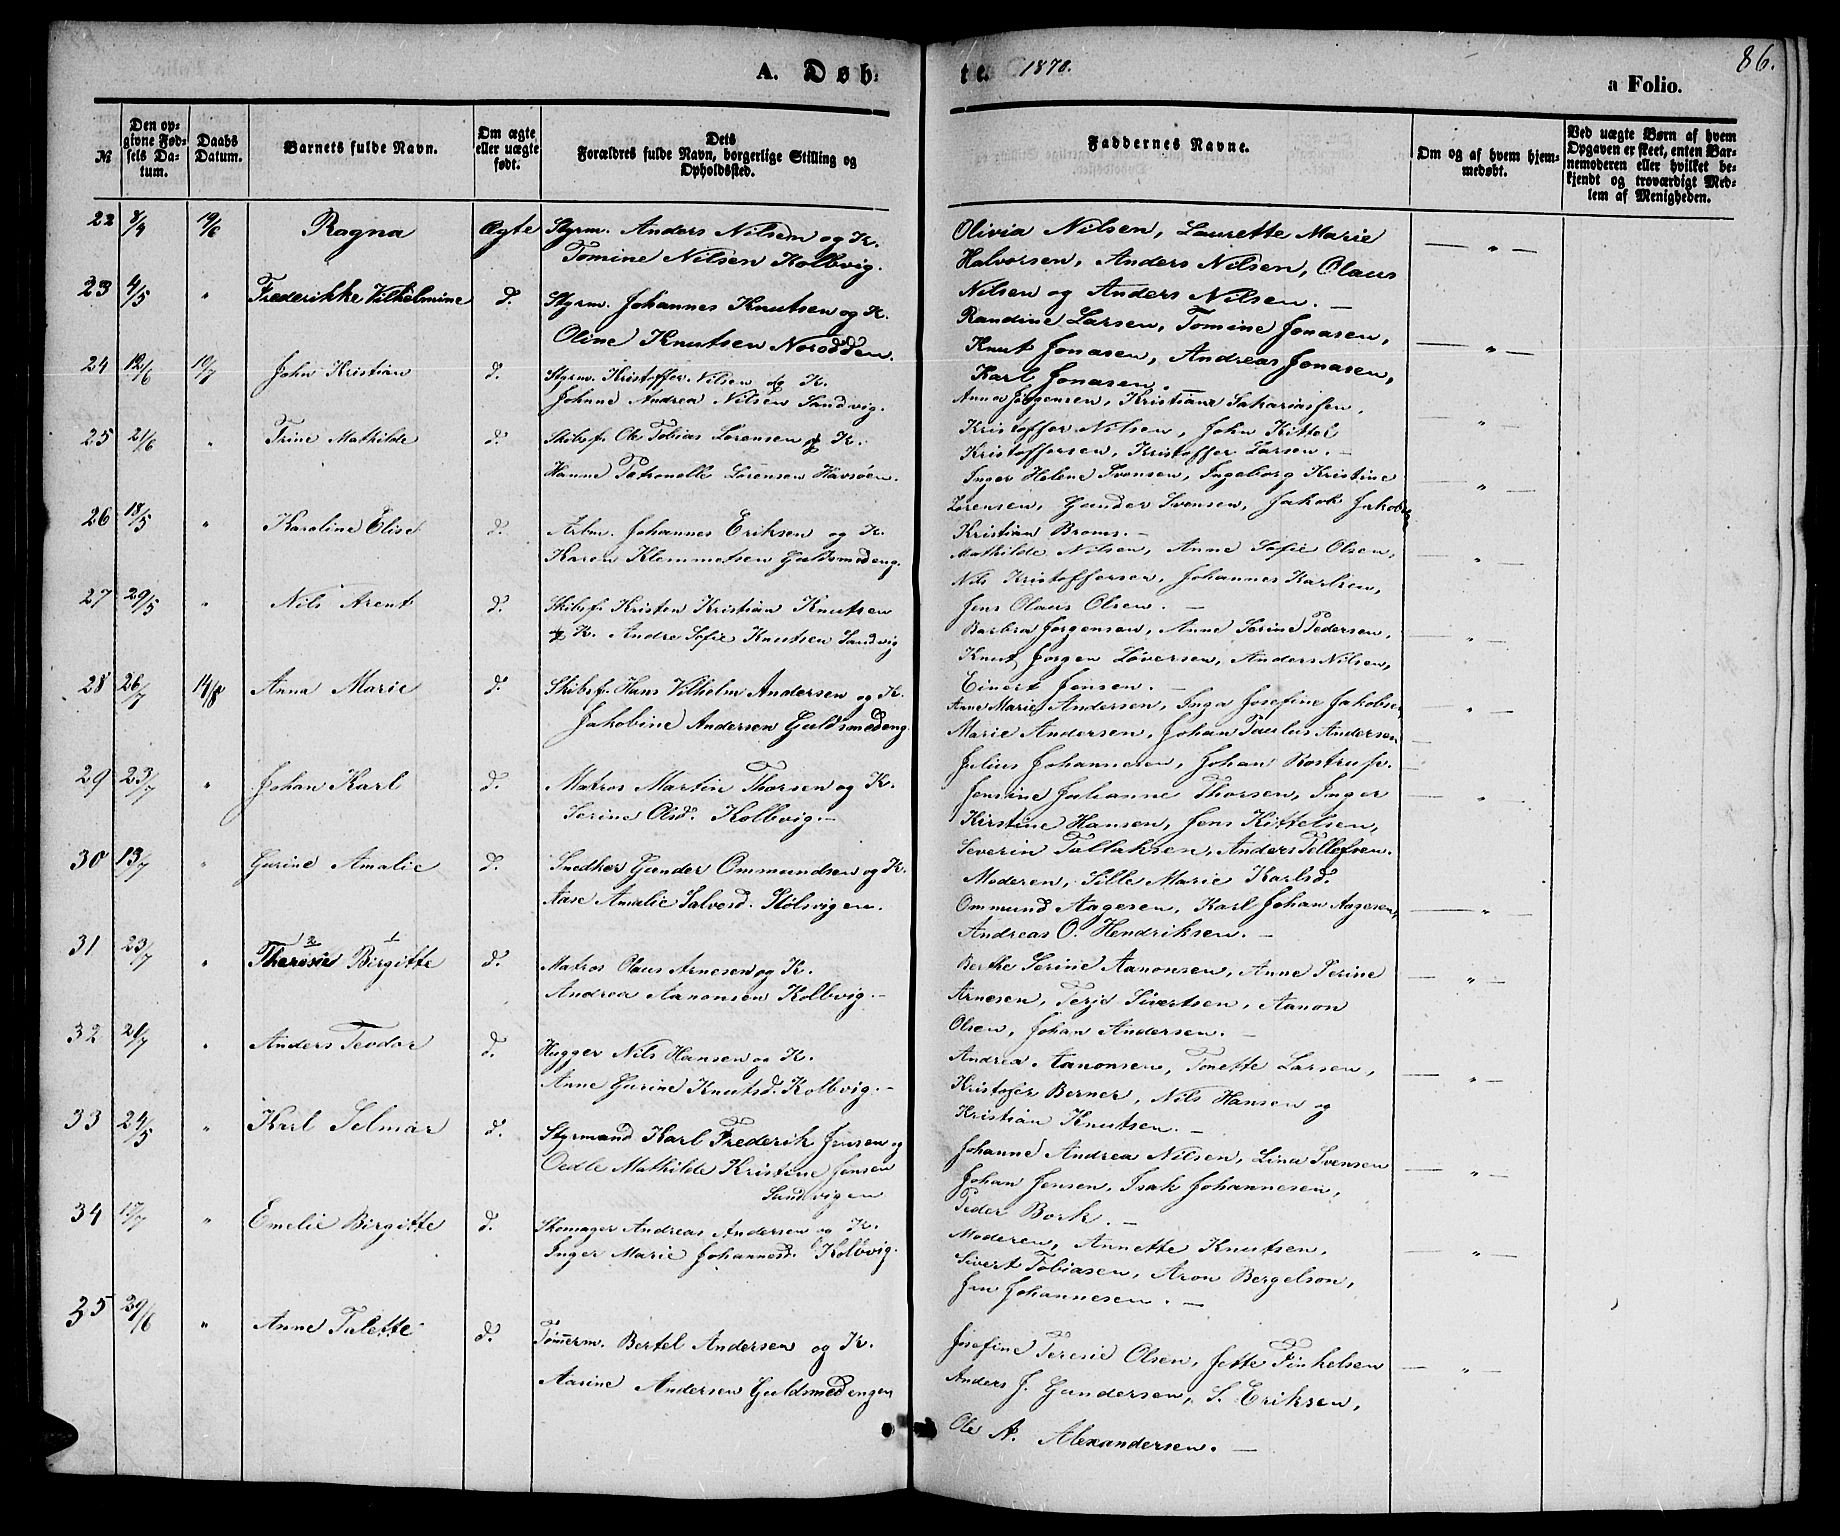 A. Døb-
te. 1870.
86.
a Folio.
№
Den op-
givne Fød-
sels Da-
tum.
Daabs
Datum.
Barnets fulde Navn.
Om ægte
eller uægte
født.
Dets
Forældres fulde Navn, borgerlige Stilling og
Opholdssted.
Faddernes Navne.
Om og af hvem hjem-
medøbt.
Ved uægte Børn af hvem
Opgaven er skeet, enten Bar-
nemoderen eller hvilket be-
kjendt og troværdigt Med-
lem af Menigheden.
22 8/4 19/6 Ragna Ægte Styrm. Anders Nilsen og K.
Tomine Nilsen Kolbvig.
Olivia Nilsen, Laurette Marie
Halvorsen, Anders Nilsen, Olaus
Nilsen og Anders Nilsen. —
— „ —
23 4/5 „ Frederikke Vilhelmine d. Styrm. Johannes Knutsen og K.
Oline Knutsen Norodden.
Randine Larsen, Tomine Jonasen,
Knut Jonasen, Andreas Jonasen,
Karl Jonasen.
— „ —
24 12/6 10/7 John Kristian d. Styrm. Kristoffer Nilsen og K.
Johanne Andrea Nilsen Sandvig.
Anna Jørgensen, Kristiane Sakariassen,
Kristoffer Nilsen, John Kittel
Kristoffersen, Kristoffer Larsen. —
— „ —
25 21/6 „ Trine Mathilde d. Skibsf. Ole Tobias Lorensen og K.
Hanne Petronelle Lorensen Havsøen.
Inger Helene Svensen, Ingeborg Kristine
Lorensen, Gunder Svensen, Jakob Jakobsen
Kristian Broms. —
— „ —
26 18/5 „ Karoline Elise d. Arbm. Johannes Eriksen og K.
Karen Klemmetsen Guldsmedeng.
Mathilde Nilsen, Anne Sofie Olsen,
Nils Kristoffersen, Johannes Karlsen,
Jens Olaus Olsen. —
— „ —
27 29/5 „ Nils Arent d. Skibsf. Kristen Kristian Knutsen
og K. Andre Sofie Knutsen Sandvig
Barbra Jørgensen, Anne Serine Pedersen,
Knut Jørgen Løversen, Anders Nilsen,
Einert Jensen. —
— „ —
28 26/7 14/8 Anna Marie d. Skibsf. Hans Vilhelm Andersen og K.
Jakobine Andersen Guldsmedeng.
Anne Marie Andersen, Inga Josefine Jakobsen,
Marie Andersen, Johan Paulus Andersen
Julius Johannesen, Johan Rostrup.
— „ —
29 23/7 „ Johan Karl d. Matros Martin Thorsen og K.
Serine Olsd. Kolbvig. —
Jensine Julianne Thorsen, Inger
Kirstine Hansen, Jens Kittelsen,
Severin Tallaksen, Anders Tellefsen.
— „ —
30 13/7 „ Gurine Amalie d. Snedker Gunder Ommundsen og K.
Aase Amalie Salvesd. Stølsvigen.
Moderen, Sille Marie Karlsd.
Ommund Aagesen, Karl Johan Aagesen,
Andreas O. Hendriksen. —
— „ —
31 23/7 „ Theresie Birgitte d. Matros Olaus Arnesen og K.
Andrea Aanonsen Kolbvig. —
Berthe Serine Aanonsen, Anne Serine
Arnesen, Terjd Sivertsen, Aanon
Olsen, Johan Andersen. —
— „ —
32 21/7 „ Anders Teodor d. Hugger Nils Hansen og K.
Anne Gurine Knutsd. Kolbvig. —
Andrea Aanonsen, Tonette Larsen,
Kristofer Berner, Nils Hansen og
Kristian Knutsen. —
— „ —
33 24/5 „ Karl Selmar d. Styrmand Karl Frederik Jensen og
Oedle Mathilde Kristine Jensen
Sandvigen
Johanne Andrea Nilsen, Lina Svensen
Johan Jensen, Isak Johannesen,
Peder Bork. —
— „ —
34 17/7 „ Emelie Birgitte d. Skomager Andreas Andersen og K.
Inger Marie Johannesd. Kolbvig.
Moderen, Annette Knutsen,
Sivert Tobiasen, Aron Bergelson,
Jens Johannesen. —
„ —
35 29/6 „ Anne Talette d. Tømmerm. Bertel Andersen og K.
Aasine Andersen Guldsmedengen
Josefine Teresie Olsen, Jette Finkelsen
Anders J. Gundersen, S. Eriksen,
Ole A. Alexandersen. —
— „ —